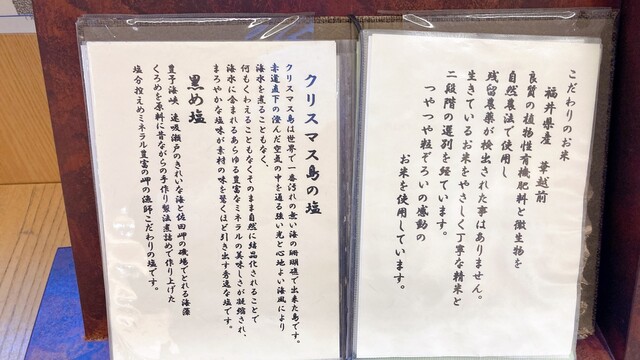 こだわりのお米
福井県産　華越前
良質の植物性有機肥料と微生物を
自然農法で使用し
残留農薬が検出された事はありません。
生きているお米をやさしく丁寧な精米と
二段階の選別を経ています。
つやつや粒ぞろいの感動の
お米を使用しています。
クリスマス島の塩
クリスマス島は世界で一番汚れの無い海の珊瑚礁で出来た島です。
赤道直下の澄んだ空気の中を通る強い光と心地よい海風により
海水を煮ることもなく、
何もくわえることもなくそのまま自然に結晶化されることで
海水に含まれるあらゆる豊富なミネラルの美味しさが凝縮され、
まろやかな塩味が素材の味を驚くほど引き出す秀逸な塩です。
黒め塩
豊予海峡、速吸瀬戸のきれいな海と佐田岬の磯場でとれる海藻
くろめを原料に昔ながらの手作り製法煮詰めで作り上げた
塩分控えめミネラル豊富の岬の漁師こだわりの塩です。